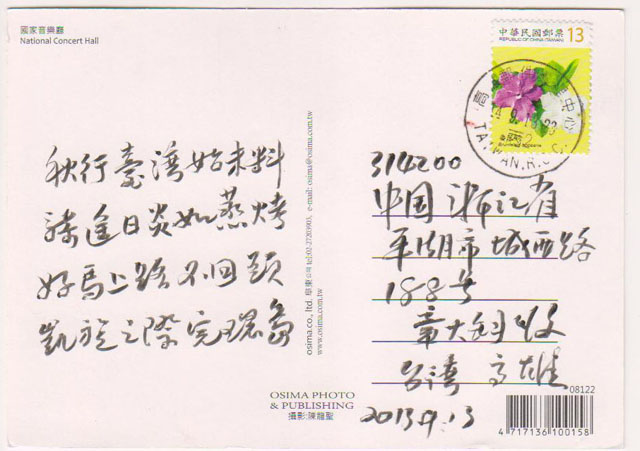 國家音樂廳
National Concert Hall
中華民國郵票 13
REPUBLIC OF CHINA (TAIWAN)
秋行臺灣始未料
騎進日炎如蒸烤
好馬上路不回頭
凱旋之際完環島
osima co., ltd. 阜東公司 tel:(02)27203903, e-mail: osima@osima.com.tw
www.osima.com.tw
314200
中国 浙江省
平湖市 城西路
188号
章大钊 收
台湾 高雄
2013.9.13
OSIMA PHOTO
& PUBLISHING
攝影:陳龍聖
08122
4 717136 100158